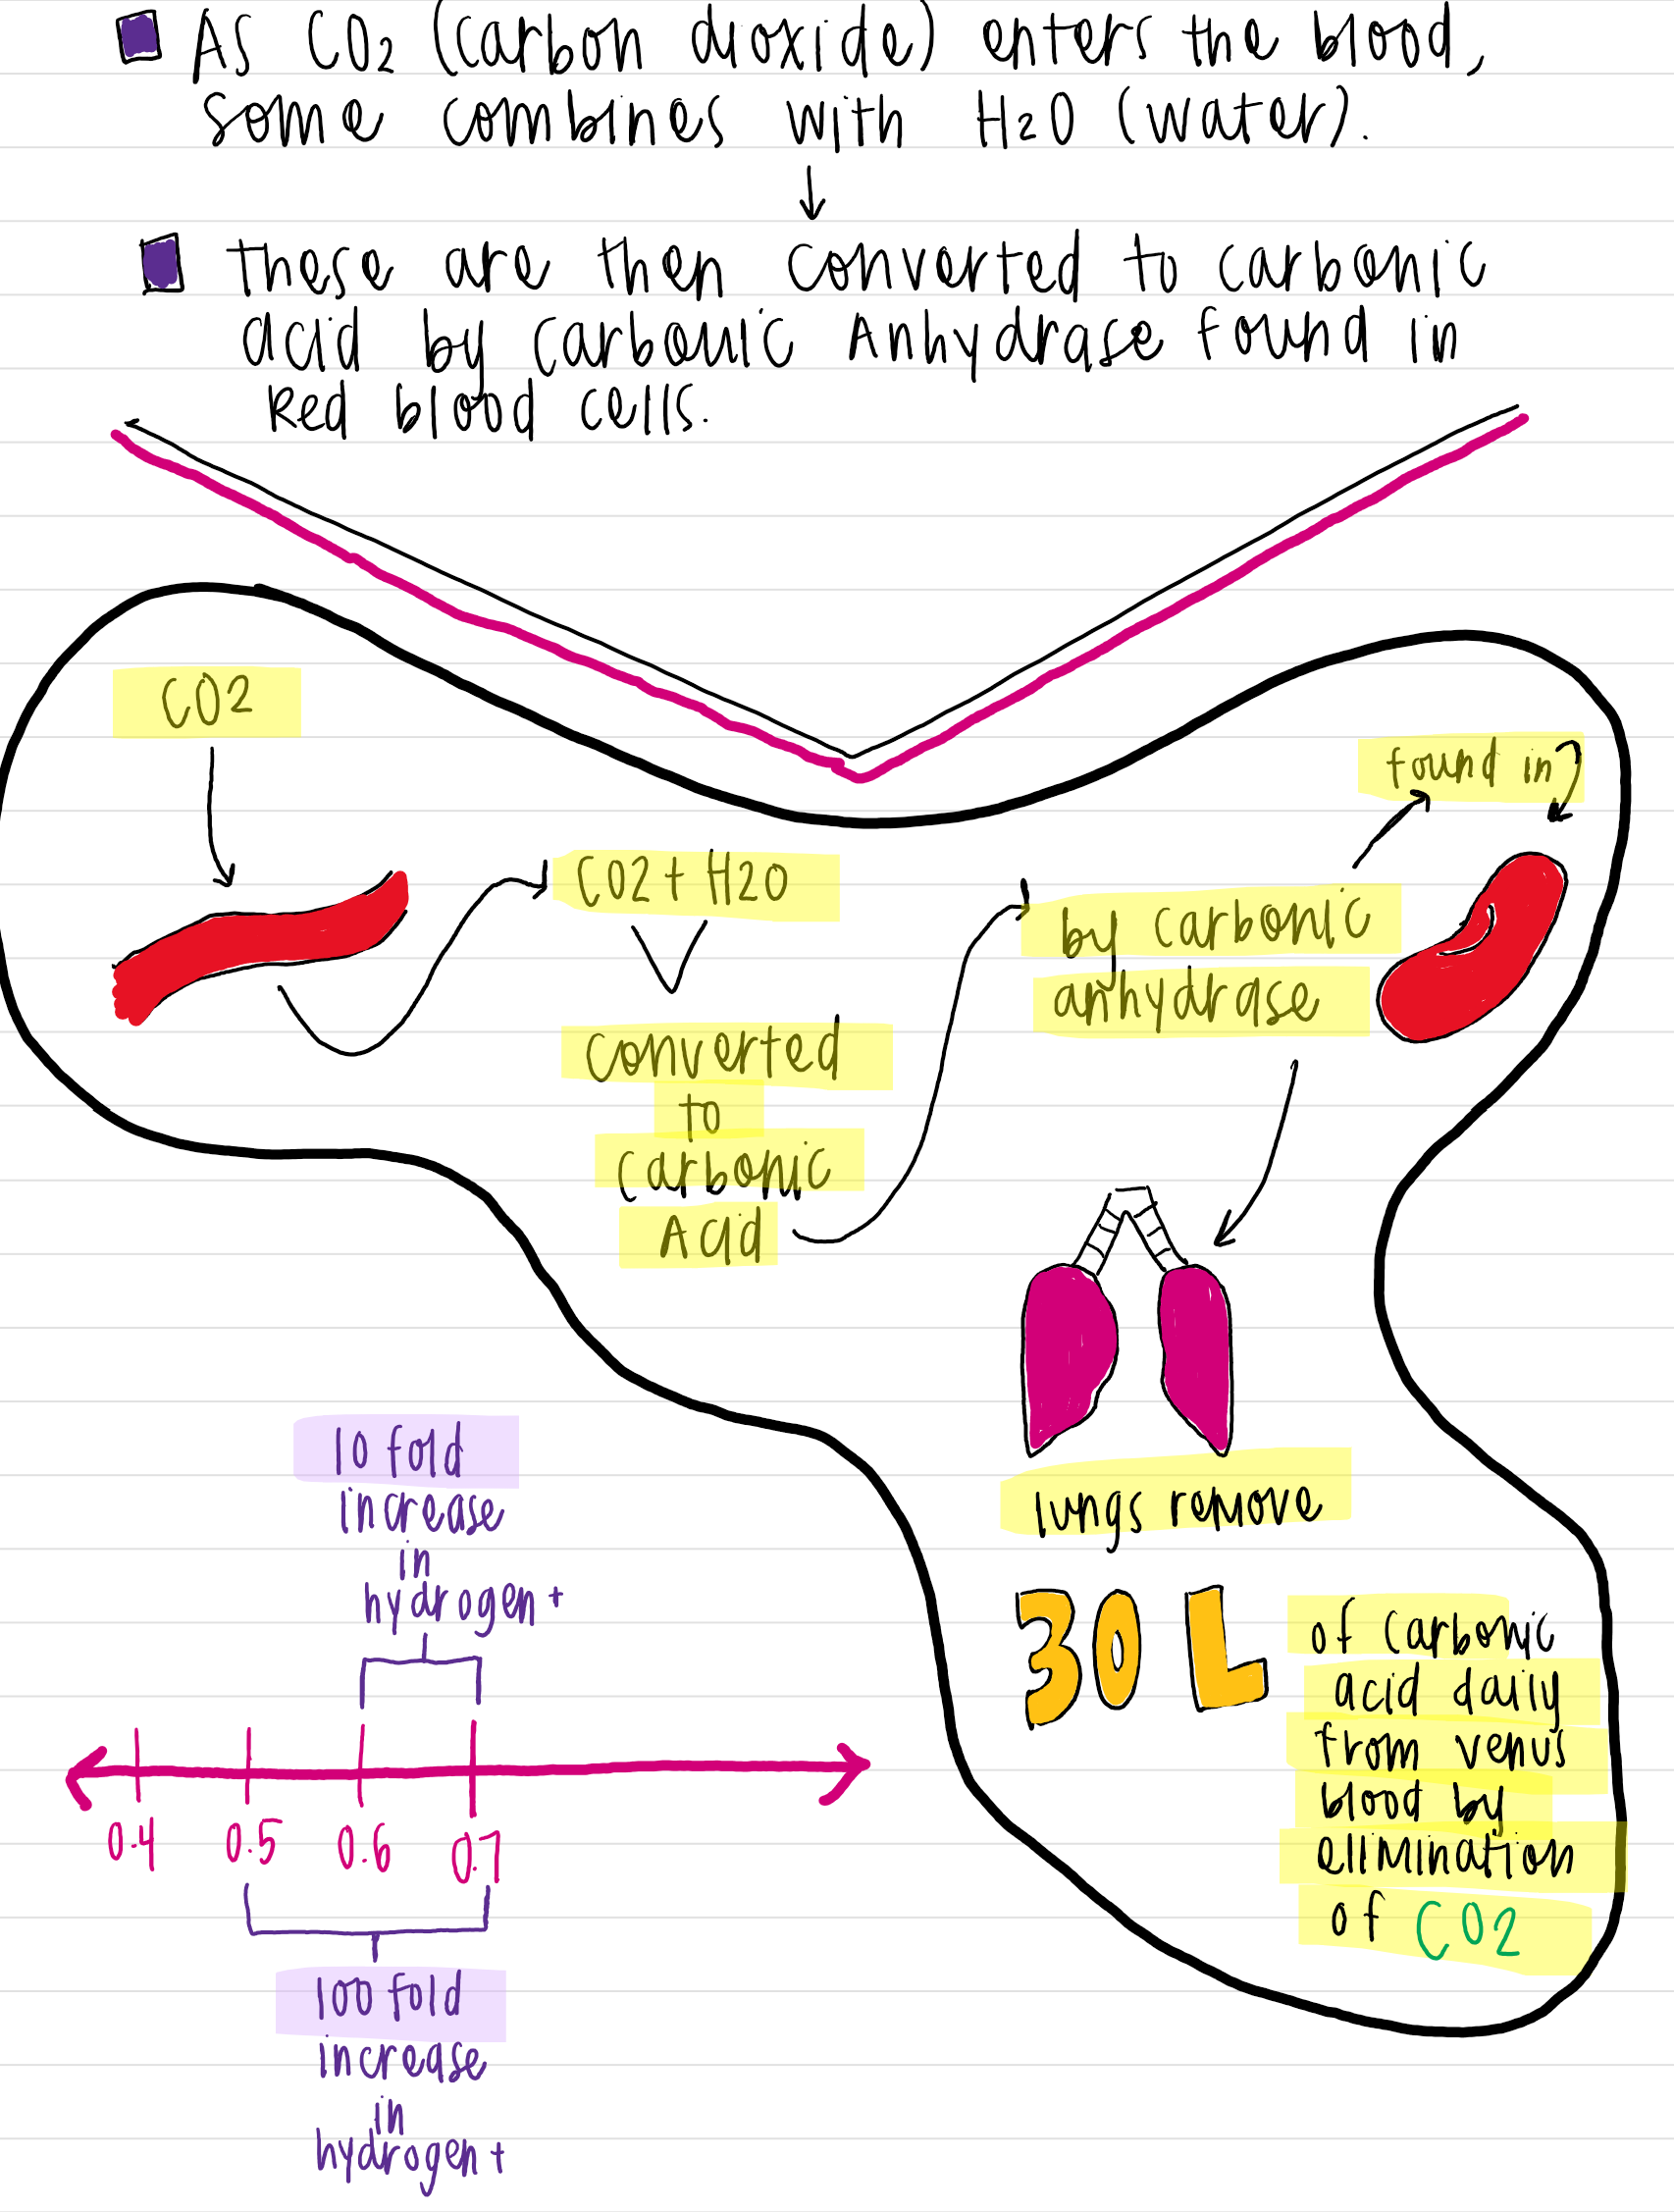 As CO2 (carbon dioxide) enters the blood,
some combines with H2O (water).
these are then converted to carbonic
acid by carbonic Anhydrase found in
Red blood cells.
CO2
found in
CO2 + H2O
by carbonic
anhydrase
converted
to
carbonic
Acid
lungs remove
30 L
of carbonic
acid daily
from venus
blood by
elimination
of CO2
10 fold
increase
in
hydrogen+
0.4 0.5 0.6 0.7
100 fold
increase
in
hydrogen+